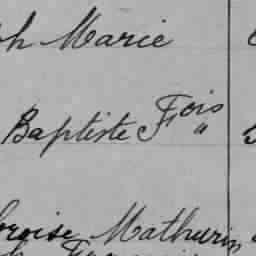 ph Marie
Baptiste Fois "
broise Mathurin